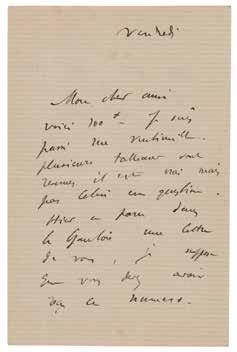 Vendredi
Mon cher ami
voici 300 f. Je suis
passé rue Vintimille.
plusieurs tableaux sont
venus il est vrai mais
pas celui en question.
Hier a paru dans
le Gaulois une lettre
de vous, je suppose
que vous devez avoir
reçu ce numéro.